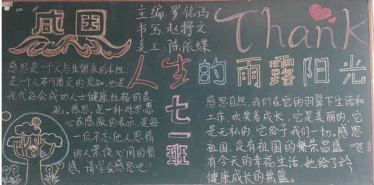 感恩
主编:罗铭鸿
书写:赵将文
美工:陈依蝶
Thank
人生的雨露阳光
七一班
感恩是一个人与生俱来的本性
是一个人不可磨灭的良知,也是
现代社会成功人士健康性格的表
现。感恩,是一种对恩惠
心存感激的表示,是每
一位不忘他人恩情
的人萦绕心间的情
感,请学会感恩吧!
感恩自然,我们在它的羽翼下生活和
工作,欢笑着成长,它是美丽的,它
是无私的,它给予我们一切,感恩
祖国,没有祖国的繁荣昌盛,哪
有今天的幸福生活,她给了我
健康成长的